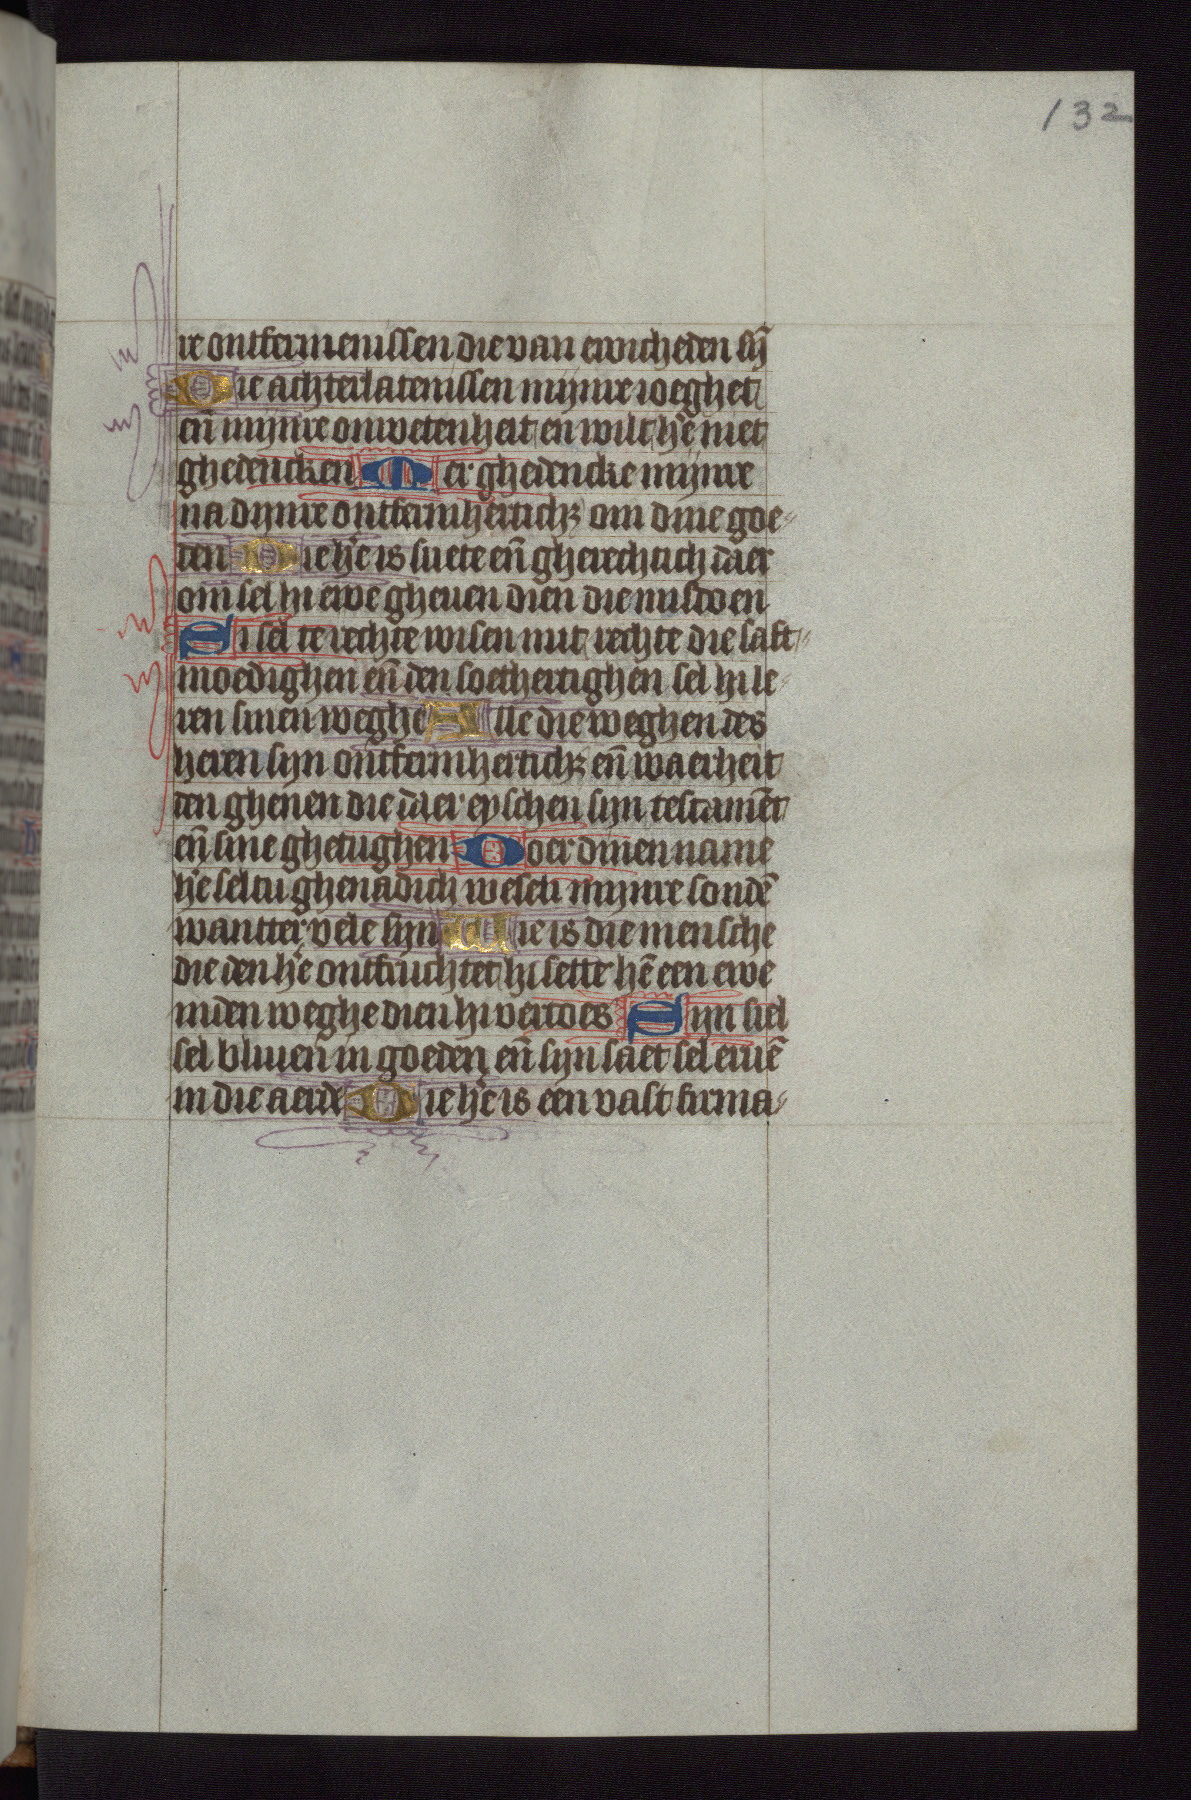 132
re ontfermenissen die van ewicheden sij̄
Die achterlatenissen mijnre ioeghet
en̄ mijnre onwetenheit en wilt he͛ niet
ghedencken Mer ghedencke mijnre
na dijnre ontfermherticħ om dine goe⸗
den Die he͛ is suete en̄ gherechtich daer
om sel hi ewe gheuen dien die misdoen
Hi sel te rechte wisen mit rechte die saft⸗
moedighen en̄ den soethertighen sel hi le⸗
ren sinen weghe Alle die weghen des
heren sijn ontfermherticħ en̄ waerheit
den ghenen die daer eyschen sijn testamēt
en̄ sine ghetughen Doer dinen name
he͛ seltu ghenadich wesen mijnre sondē
wantter vele sijn Wie is die mensche
die den he͛ ontfruchtet hi sette hē een ewe
inden weghe dien hi vercoes Sijn siel
sel bliuen in goeden en̄ sijn saet sel eruē
in die aerde Die he͛ is een vast firma⸗